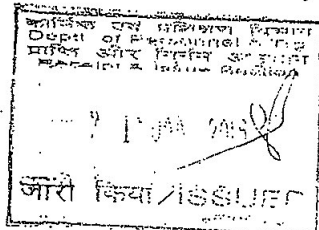 कार्मिक एवं प्रशिक्षण विभाग
Deptt of Personnel & Trg
प्राप्ति और निर्गम अनुभाग
Receipt & Issue Section
जारी किया/ISSUED